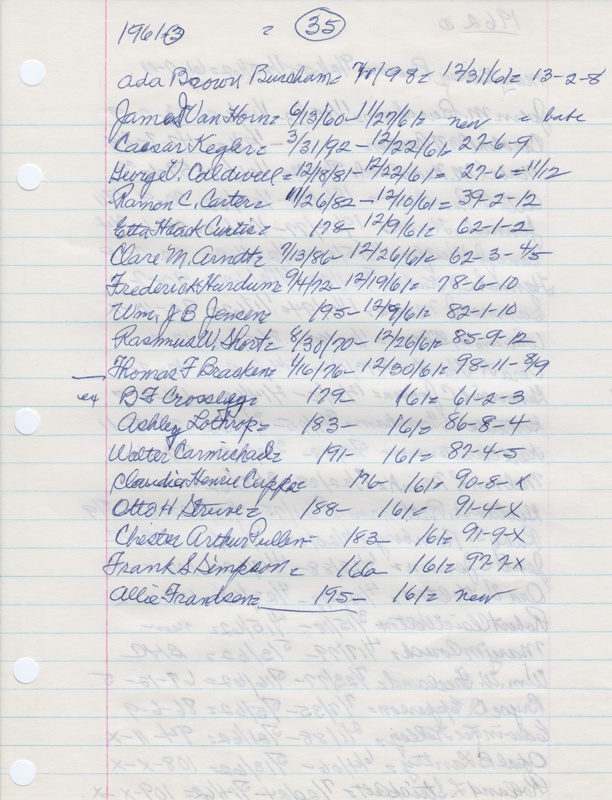 1961③ = 35
Ada Brown Burcham = 7/ /98 = 12/31/61 = 13-2-8
James VanHorn = 6/13/60 - 11/27/61 = new = babe
Caesar Kegler = 3/31/92 - 12/22/61 = 27-6-9
George V. Caldwell = 12/8/81 - 12/22/61 = 27-6 = 11/12
Ramon C. Carter = 11/26/82 - 12/10/61 = 39-2-12
Etta Curtis = 178 - 12/9/61 = 62-1-2
Clare M. Arndt = 7/13/86 - 12/26/61 = 62-3-4/5
Frederick Hardum = 9/4/72 - 12/19/61 = 78-6-10
Wm. J B Jensen = 195 - 12/9/61 = 82-1-10
Rasmus W Short = 8/30/70 - 12/26/61 = 85-9-12
Thomas F Bracken = 4/16/76 - 12/30/61 = 98-11-8/9
B F = 179 161 = 61-2-3
Ashley Lothrop = 183 - 161 = 86-8-4
Walter Carmichael = 191 - 161 = 87-4-5
Claudia Henrie Capps = 176 - 161 = 90-8-X
Otto H Struve = 188 - 161 = 91-4-X
Chester Arthur Pullen = 183 161 = 91-9-X
Frank S. Simpson = 166 161 = 97-7-X
Allie Frandsen = 195 - 161 = new